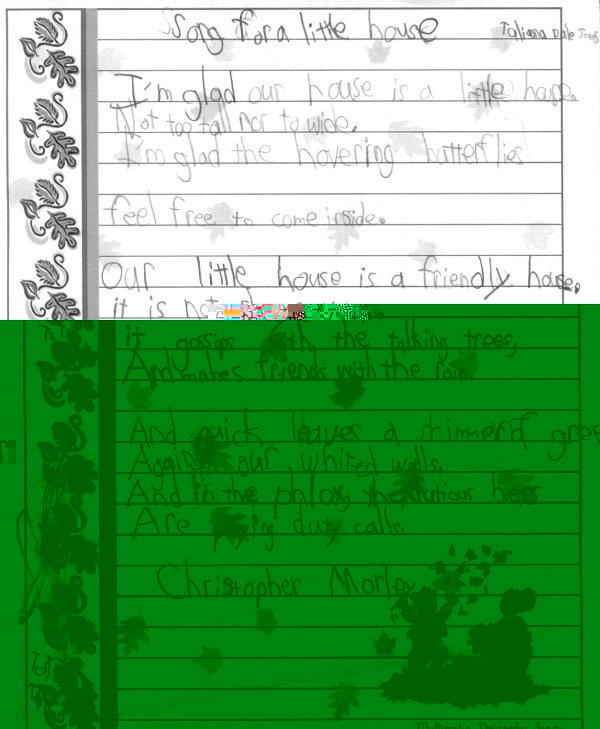 Song for a little house
I'm glad our house is a little house.
Not too tall nor to wide.
I'm glad the hovering butterflies
feel free to come inside.
Our little house is a friendly house.
it is not
it gossips with the talking trees,
And makes friends with the rain.
And quick leaves a shimmer of gree
Against our whited walls.
And in the phlox, the bees
Are paying duty calls.
Christopher Morley